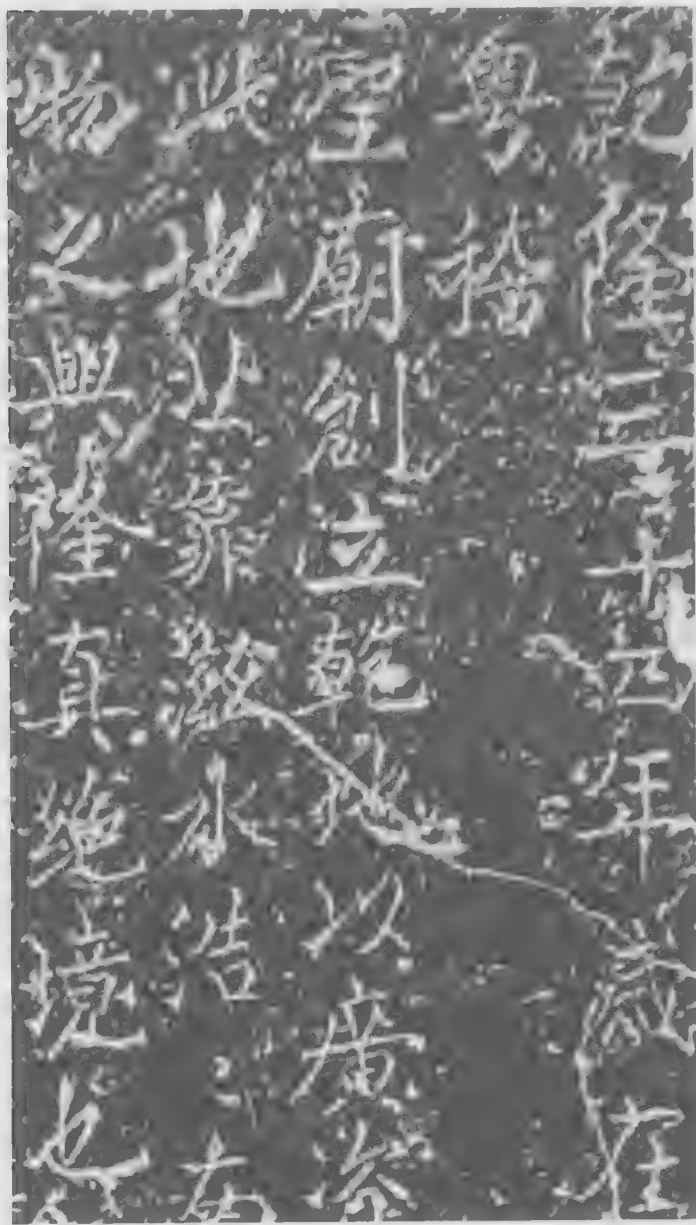 乾隆三十二年歲在
粵稽
聖廟創立乾坤以廣
此地北靠滋水浩
物之興隆真絶境也